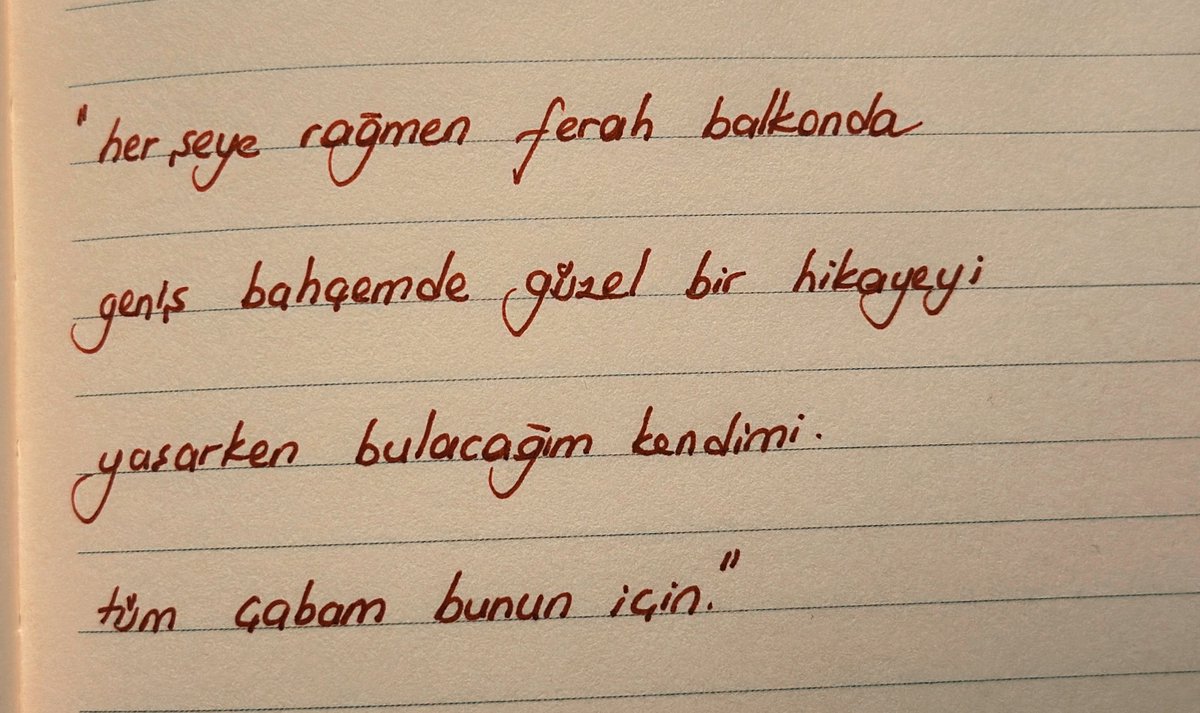 "her şeye rağmen ferah balkonda
geniş bahçemde güzel bir hikayeyi
yaşarken bulacağım kendimi.
tüm çabam bunun için."